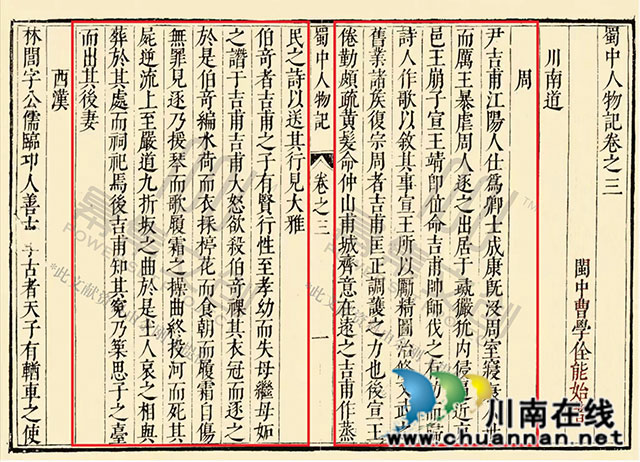 蜀中人物記卷之三
閩中曹學佺能始
川南道
周
尹吉甫江陽人仕爲卿士成康旣没周室寖
而厲王暴虐周人逐之出居于彘玁狁內侵逼近
邑王崩子宣王靖卽位命吉甫帥師伐之有功而歸
詩人作歌以敘其事宣王所以勵精圖治修文武
舊業諸族復宗周者吉甫匡正調護之力也後宣王
倦勤頗疏黃髮命仲山甫城齊意在遠之吉甫作蒸
蜀中人物記 卷之三 一
民之詩以送其行見大雅
伯奇者吉甫之子有賢行性至孝幼而失母繼母妬
之譖于吉甫吉甫大怒欲殺伯奇祼其衣冠而逐之
於是伯奇編水荷而衣採楟花而食朝而履霜自傷
無罪見逐乃援琴而歌履霜之操曲終投河而死其
屍逆流上至嚴道九折坂之曲於是土人哀之相與
葬於其處而祠祀焉後吉甫知其寃乃築思子之臺
而出其後妻
西漢
林閭字公儒臨邛人善古 古者天子有輶車之使
川南在线
www.chuannan.net